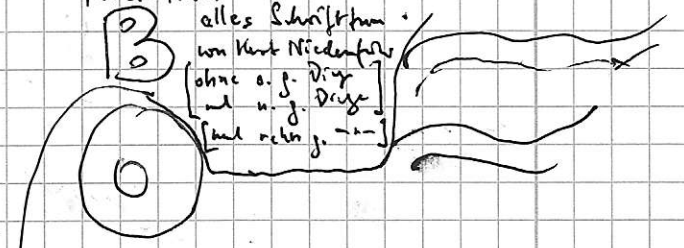 B
alles Schrifttum
von Kurt Niedenführ
[ohne o. g. Dinge
und u. g. Dinge]
[und rechts g. –"–]